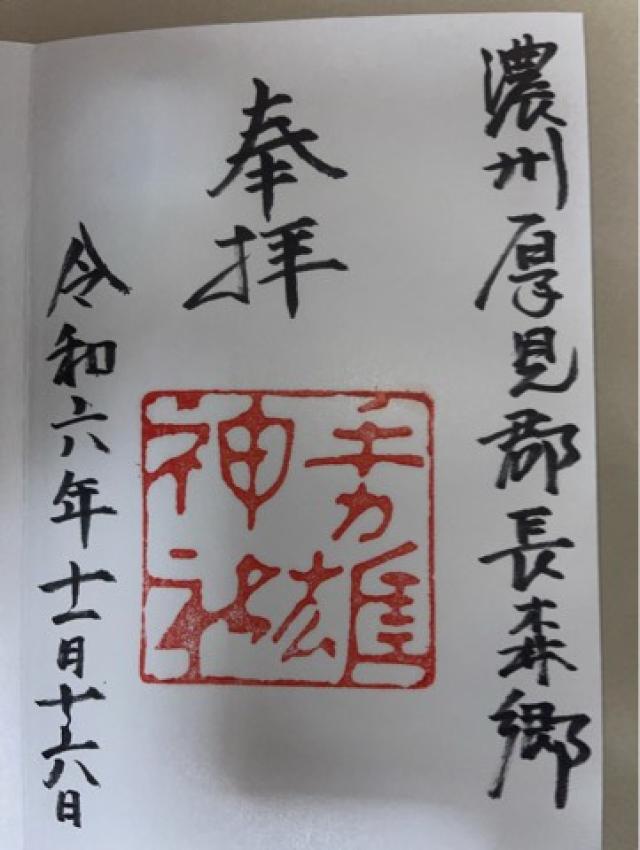 濃州厚見郡長森郷
奉拝
手力雄
神社
令和六年十一月十六日